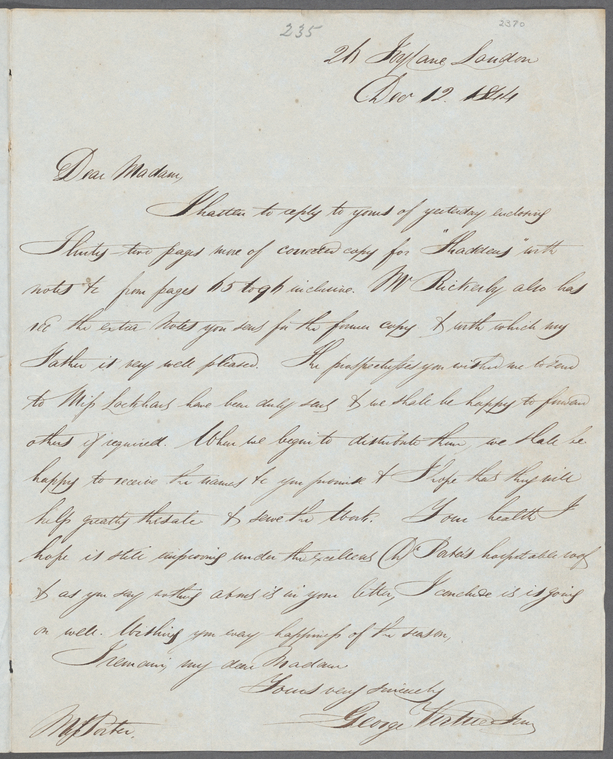 235 2370
26 Ivy Lane London
Dec 12. 1844
Dear Madam,
I hasten to reply to yours of yesterday enclosing
Thirty-two pages more of corrected copy for "Thaddeus" with
notes &c from pages 65 to 96 inclusive. Mr Rickerby also has
rec the extra notes you sent for the former copy & with which my
Father is very well pleased. The prospectuses you wished me to send
to Miss Lockhart have been duly sent & we shall be happy to forward
others if required. When we begin to distribute them, we shall be
happy to receive the names &c you promise & I hope that they will
help greatly the sale & serve the Work. Your health I
hope is still improving under the excellent Dr Park's hospitable roof
& as you say nothing adverse is in your letter, I conclude it is going
on well. Wishing you every happiness of the season,
I remain, my dear Madam
Yours very sincerely
George Virtue Jun
Miss Porter.